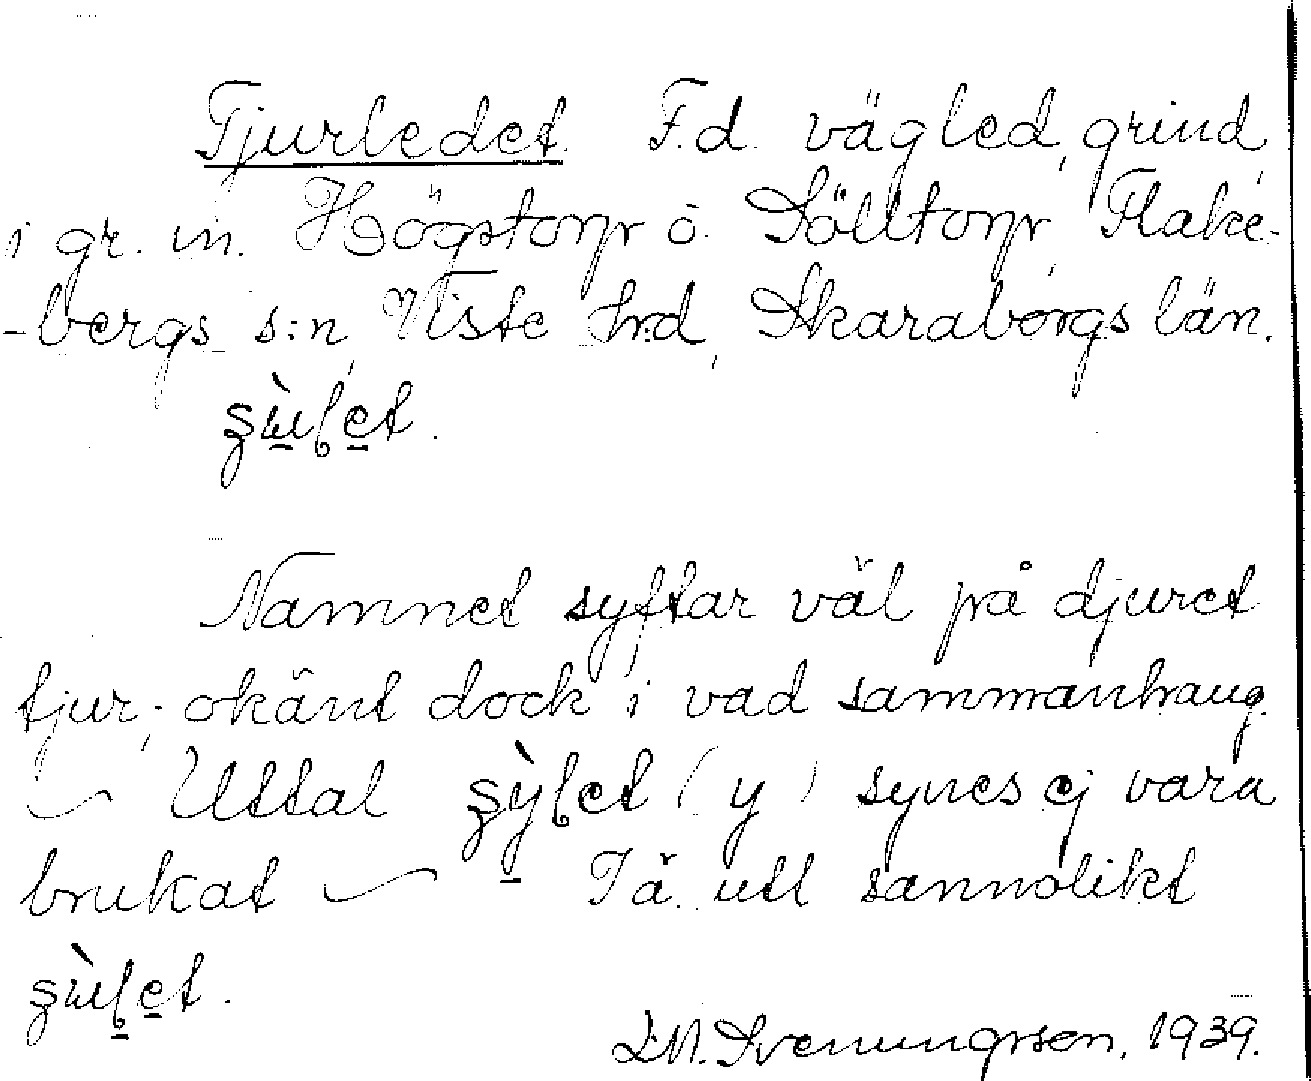 Tjurledet. F.d. vägled, grind
i gr. m. Högstorp o. Sölltorp, Flake-
-bergs s:n, Viste hrd, Skaraborgs län.
Namnet syftar väl på djuret
tjur; okänt dock i vad sammanhang.
– Uttal (y) synes ej vara
brukat – I ä. utt sannolikt
L.M. Svenungsson, 1939.